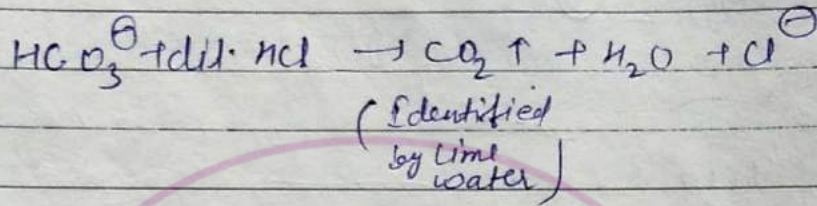 HCO₃⊖ + dil. HCl → CO₂ ↑ + H₂O + Cl⊖
(Identified
by lime
water)